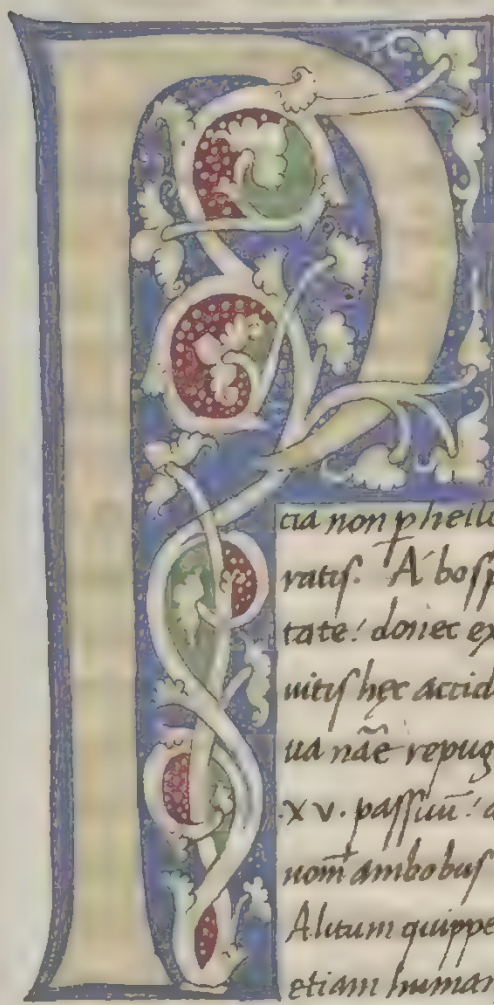 P
cia non ꝑ helle
ratis. A bosp
tate: donec ex
uitis hęc accid
ua nāe repug
·XV· passuū: a
nom̄ ambobus
Alitum quippe
etiam human